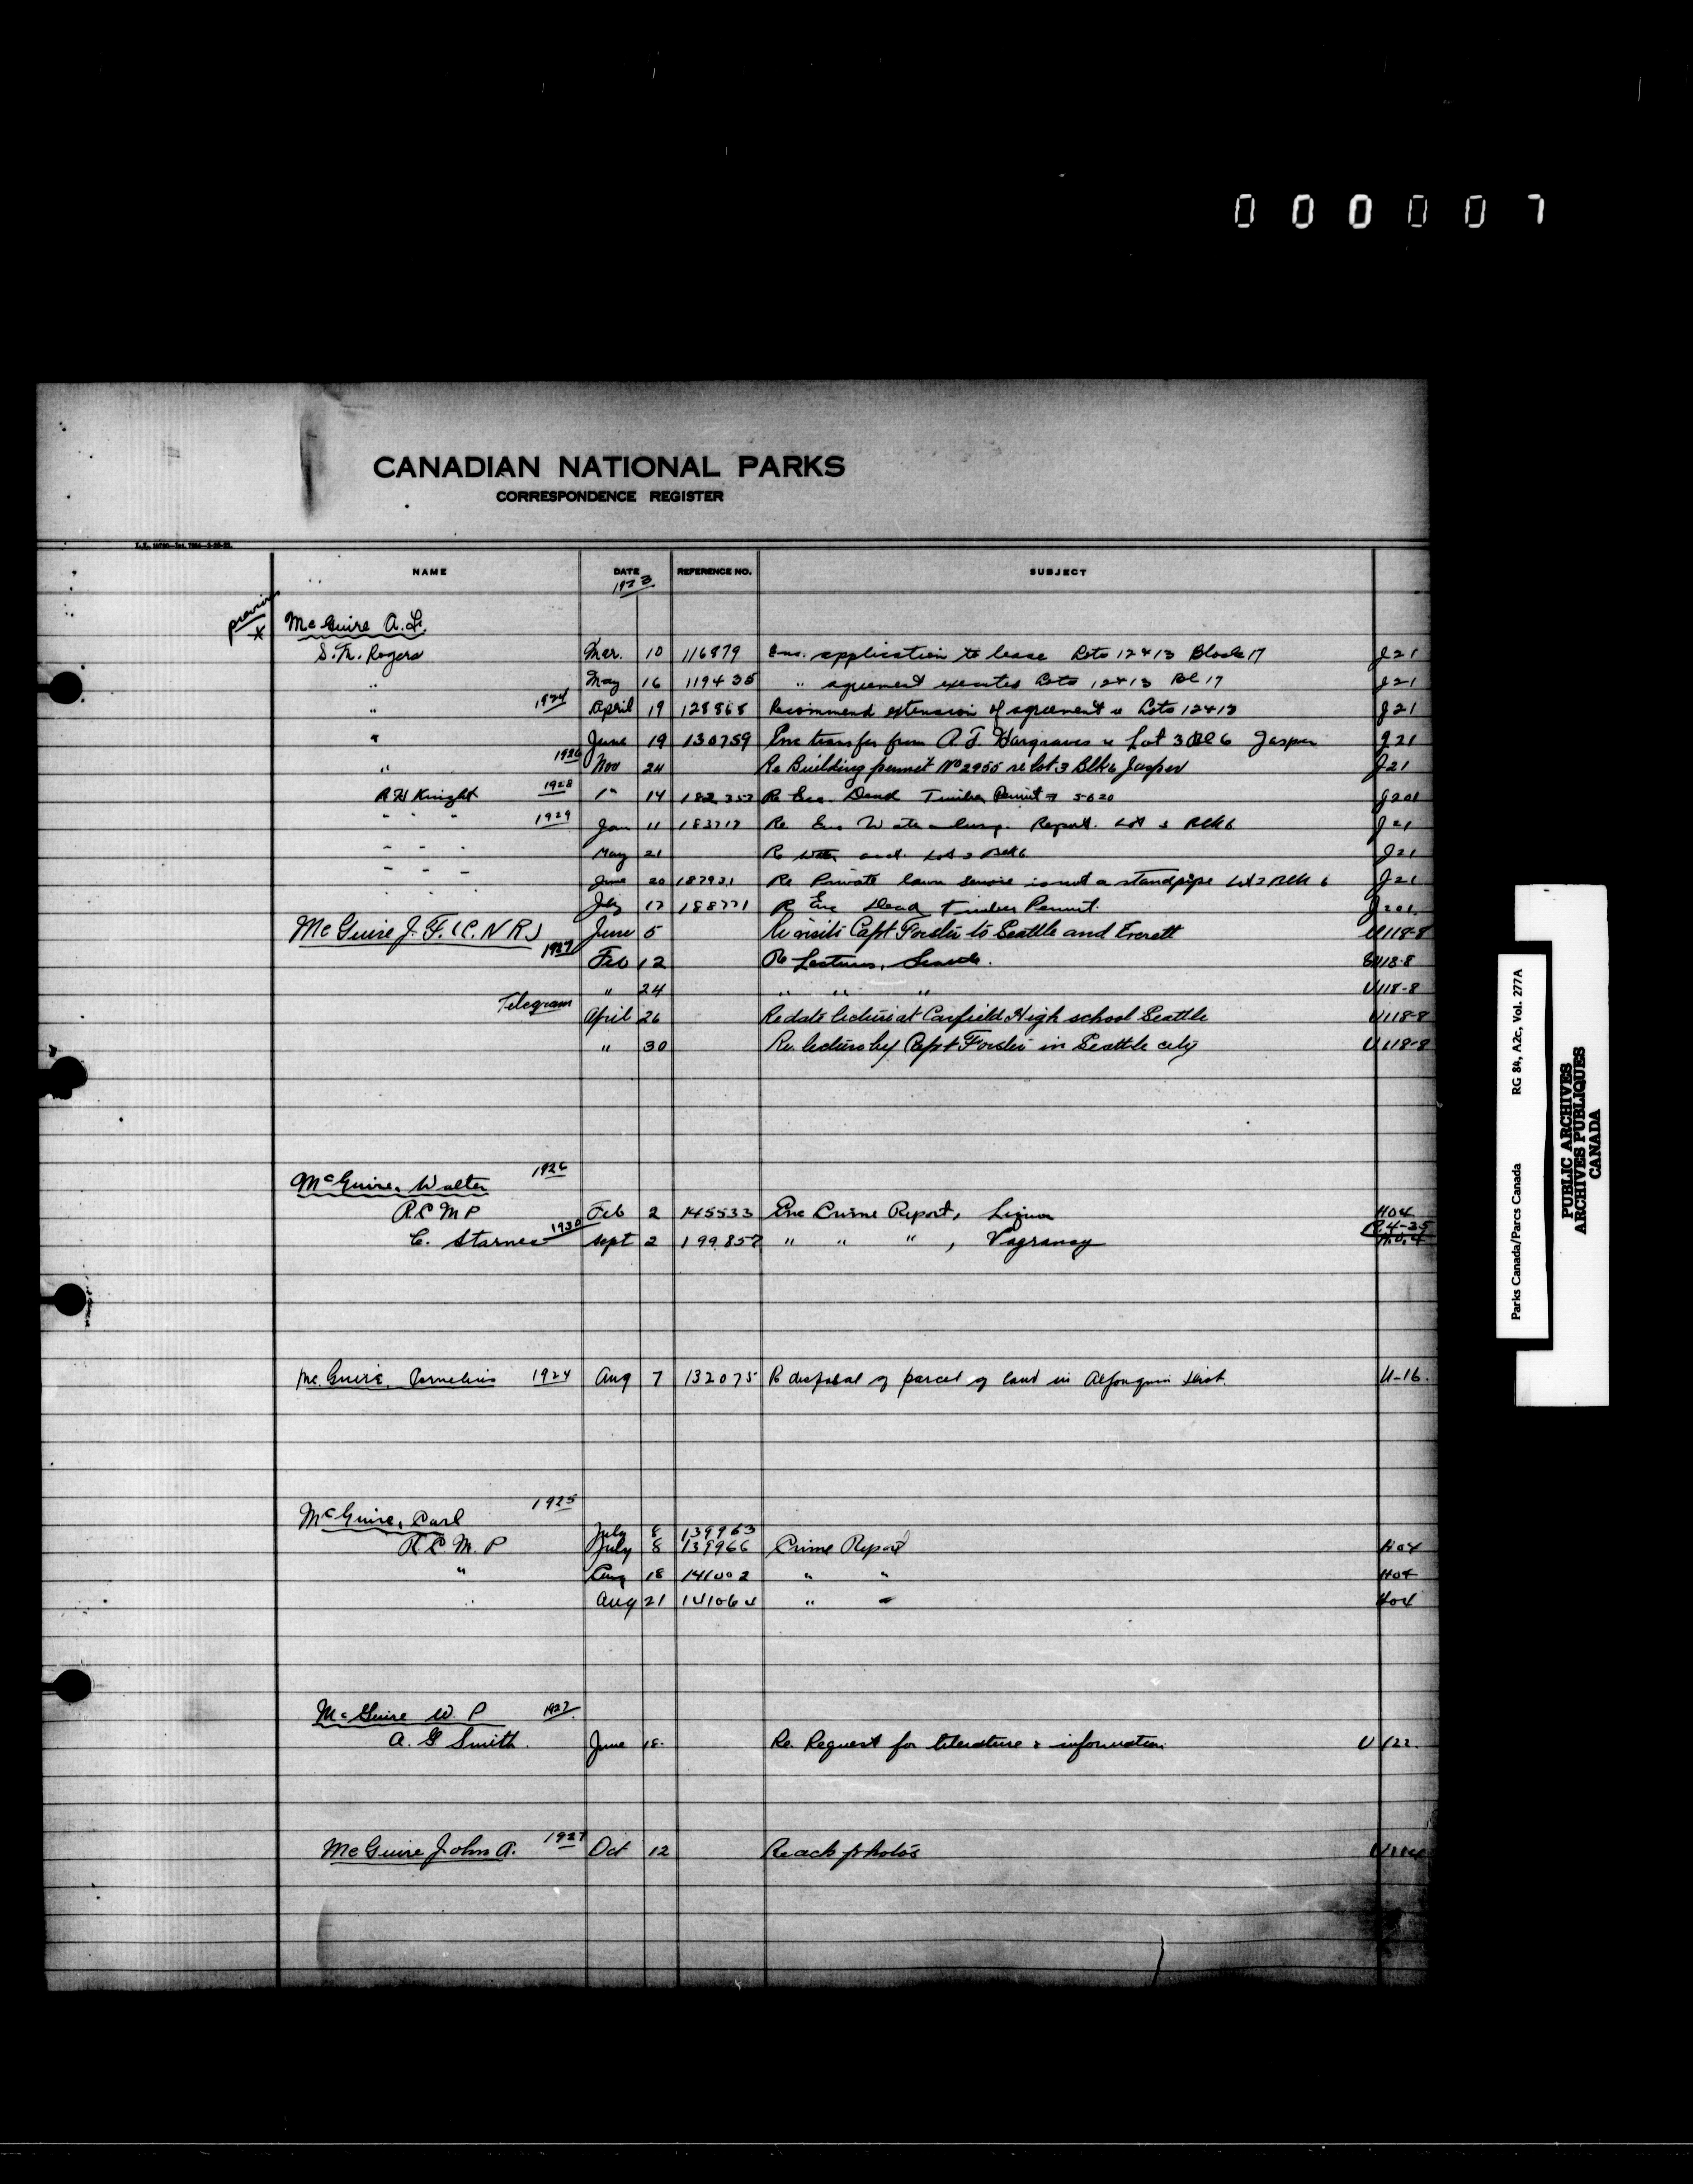 000007
CANADIAN NATIONAL PARKS
CORRESPONDENCE REGISTER
NAME DATE REFERENCE NO. SUBJECT
1923
previous
x
McGuire A.L.
S.M. Rogers Mar. 10 116879 Enc. application to lease Lots 12 & 13 Block 17 J21
" May 16 119435 " agreement executes Lots 12 & 13 Bl 17 J21
" 1924 April 19 128868 Recommend extension of agreement re Lots 12 & 13 J21
" June 19 130759 Enc transfer from A. J. Hargraves re Lot 3 Bl 6 Jasper J21
" 1926 Nov 24 Re Building permit No 2955 re lot 3 Blk 6 Jasper J21
R H Knight 1928 " 14 182353 Re Enc. Dead Timber Permit # 5620 J201
" " " 1929 Jan 11 183717 Re Enc Water Report. Lot 3 Blk 6 J21
" " " May 21 Re Water acct. Lot 3 Blk 6 J21
" " " June 20 187921 Re Private lawn service is not a standpipe Lot 3 Blk 6 J21
" " " July 17 188771 Re Enc Dead Timber Permit. J201
McGuire J. F. (C.N.R.) June 5 Re visits Capt Forster to Seattle and Everett U118-8
1927 Feb 12 Re Lectures, Seattle. U118-8
" 24 " " " U118-8
Telegram April 26 Re date lecture at Garfield High school Seattle U118-8
" 30 Re. lectures by Capt Forster in Seattle city U118-8
McGuire, Walter 1926
R C M P Feb 2 145533 Enc Crime Report, Liquor H04
C. Starnes 1930 Sept 2 199857 " " " , Vagrancy R4-25
H.0.4
McGuire, Cornelius 1924 Aug 7 132075 Re disposal of parcel of land in Algonquin Dist. U-16.
McGuire, Carl 1925
July 8 139963
R C M. P July 8 139966 Crime Report H04
" Aug 18 141002 " " H04
" Aug 21 141064 " " H04
McGuire W. P 1927
A. G Smith. June 18. Re. Request for literature & information U122.
McGuire John A. 1927 Oct 12 Re ack photos U114
Parks Canada/Parcs Canada RG 84, A2c, Vol. 277A
PUBLIC ARCHIVES
ARCHIVES PUBLIQUES
CANADA